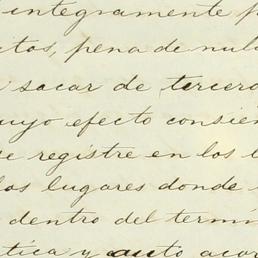 integramente p
itos, pena de nul
sacar de tercero
uyo efecto consien
se registre en los l
los lugares donde
dentro del térmi
tica y auto acor